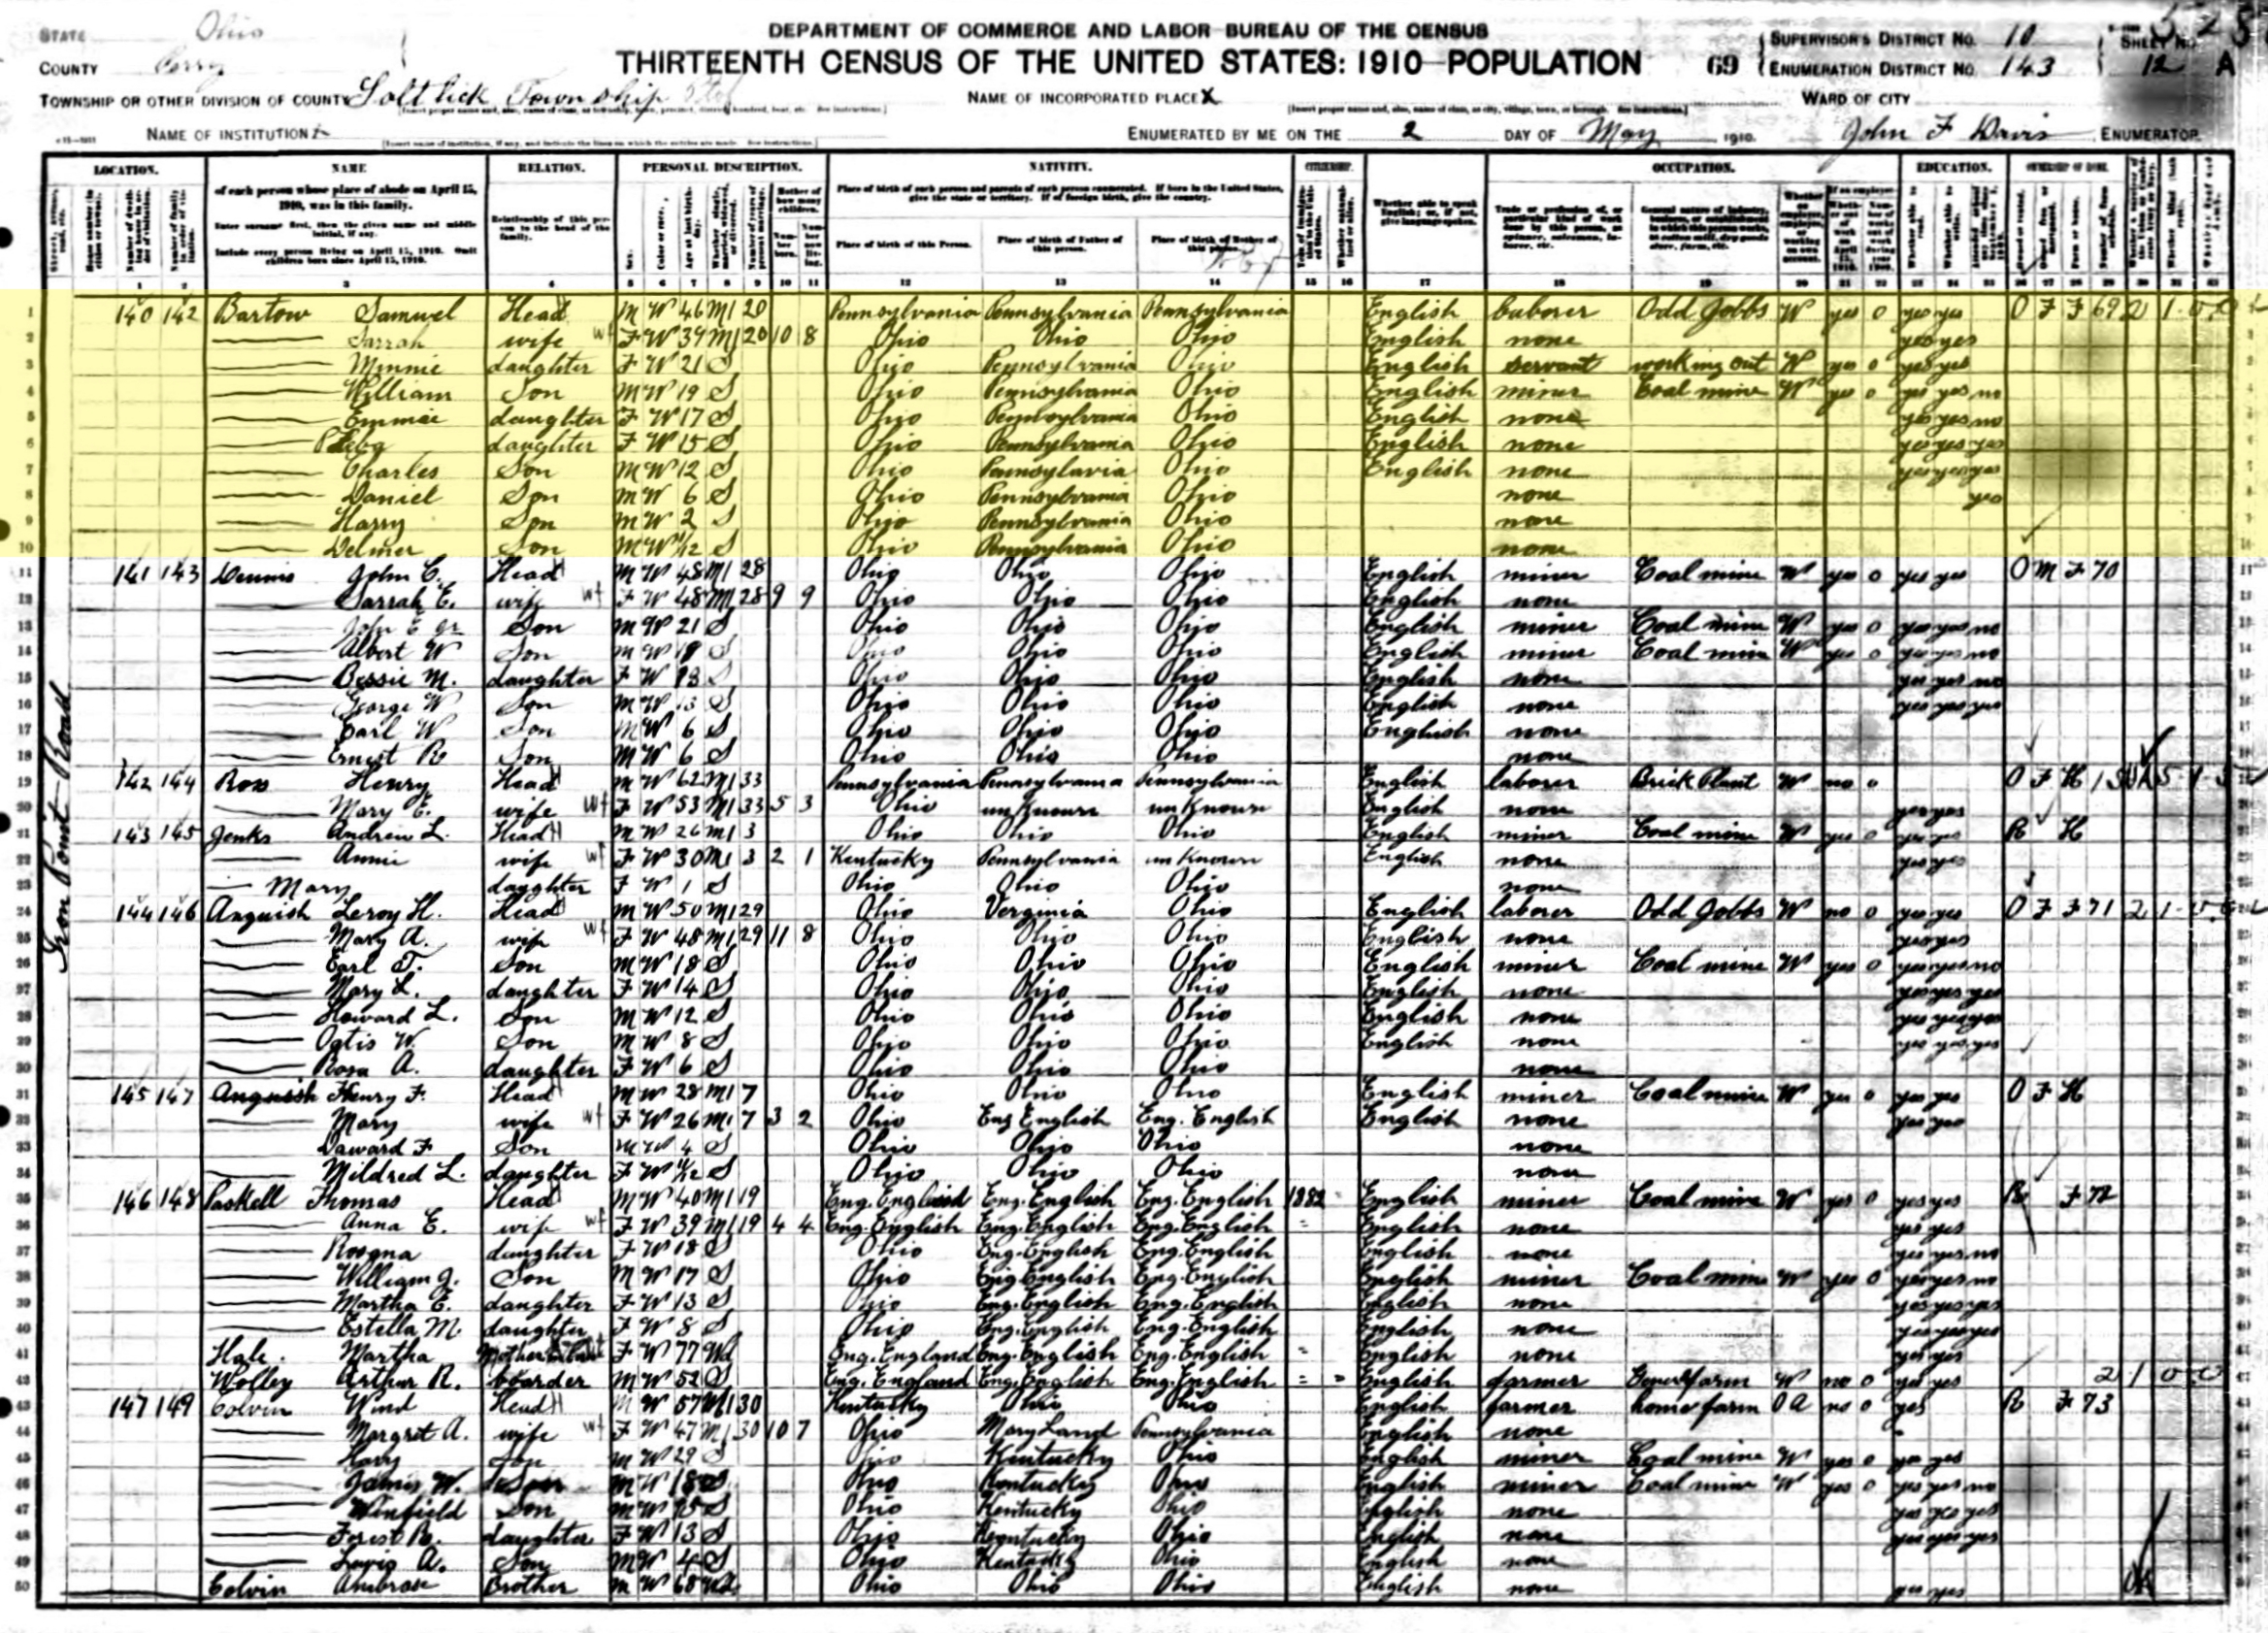 STATE Ohio
DEPARTMENT OF COMMERCE AND LABOR-BUREAU OF THE CENSUS
COUNTY Perry
THIRTEENTH CENSUS OF THE UNITED STATES: 1910-POPULATION
69
SUPERVISOR'S DISTRICT NO. 10
ENUMERATION DISTRICT NO. 143
SHEET NO. 12 A
TOWNSHIP OR OTHER DIVISION OF COUNTY Saltlick Township
NAME OF INCORPORATED PLACE X
WARD OF CITY
NAME OF INSTITUTION
ENUMERATED BY ME ON THE 2 DAY OF May, 1910.
John F Davis, ENUMERATOR
LOCATION. NAME RELATION. PERSONAL DESCRIPTION. NATIVITY. CITIZENSHIP. OCCUPATION. EDUCATION. OWNERSHIP OF HOME.
of each person whose place of abode on April 15, 1910, was in this family.
Enter surname first, then the given name and middle initial, if any.
Include every person living on April 15, 1910. Omit children born since April 15, 1910.
Relationship of this person to the head of the family.
Place of birth of each person and parents of each person enumerated. If born in the United States, give the state or territory. If of foreign birth, give the country.
Place of birth of this Person. Place of birth of Father of this person. Place of birth of Mother of this person.
Iron Point Road
1 140 142 Bartow Samuel Head M W 46 M1 20 Pennsylvania Pennsylvania Pennsylvania English laborer Odd Jobbs W yes 0 yes yes O F F 69
2 Sarrah wife F W 39 M1 20 10 8 Ohio Ohio Ohio English none yes yes
3 Minnie daughter F W 21 S Ohio Pennsylvania Ohio English servant working out W yes 0 yes yes
4 William Son M W 19 S Ohio Pennsylvania Ohio English miner Coal mine W yes 0 yes yes no
5 Emmie daughter F W 17 S Ohio Pennsylvania Ohio English none yes yes no
6 daughter F W 15 S Ohio Pennsylvania Ohio English none yes yes yes
7 Charles Son M W 12 S Ohio Pennsylavia Ohio English none yes yes yes
8 Daniel Son M W 6 S Ohio Pennsylvania Ohio none yes
9 Harry Son M W 2 S Ohio Pennsylvania Ohio none
10 Delmer Son M W S Ohio Pennsylvania Ohio none
11 141 143 Dennis John C. Head M W 48 M1 28 Ohio Ohio Ohio English miner Coal mine W yes 0 yes yes O M F 70
12 Sarrah E. wife F W 48 M1 28 9 9 Ohio Ohio Ohio English none
13 John E jr Son M W 21 S Ohio Ohio Ohio English miner Coal mine W yes 0 yes yes no
14 Albert W Son M W S Ohio Ohio Ohio English miner Coal mine W yes 0 yes yes no
15 Bessie M. daughter F W S Ohio Ohio Ohio English none yes yes no
16 George W Son M W 13 S Ohio Ohio Ohio English none yes yes yes
17 Earl W Son M W 6 S Ohio Ohio Ohio English none
18 Ernest R Son M W 6 S Ohio Ohio Ohio none
19 142 144 Ross Henry Head M W 62 M1 33 Pennsylvania Pennsylvania Pennsylvania English laborer Brick Plant W no O F H
20 Mary E. wife F W 53 M1 33 5 3 Ohio unKnown unKnown English none yes yes
21 143 145 Jenks Andrew L. Head M W 26 M1 3 Ohio Ohio Ohio English miner Coal mine W yes 0 yes yes R H
22 Annie wife F W 30 M1 3 2 1 Kentucky Pennsylvania unKnown English none yes yes
23 Mary daughter F W 1 S Ohio Ohio Ohio none
24 144 146 Anguish Leroy H. Head M W 50 M1 29 Ohio Verginia Ohio English laborer Odd Jobbs W no 0 yes yes O F F 71
25 Mary A. wife F W 48 M1 29 11 8 Ohio Ohio Ohio English none yes yes
26 Earl T. Son M W 18 S Ohio Ohio Ohio English miner Coal mine W yes 0 yes yes no
27 Mary L. daughter F W 14 S Ohio Ohio Ohio English none yes yes yes
28 Howard L. Son M W 12 S Ohio Ohio Ohio English none yes yes yes
29 Ogtis W. Son M W 8 S Ohio Ohio Ohio English none yes yes yes
30 Rosa A. daughter F W 6 S Ohio Ohio Ohio none
31 145 147 Anguish Henry F. Head M W 28 M1 7 Ohio Ohio Ohio English miner Coal mine W yes 0 yes yes O F H
32 Mary wife F W 26 M1 7 3 2 Ohio Eng English Eng. English English none yes yes
33 Daward F Son M W 4 S Ohio Ohio Ohio none
34 Mildred L. daughter F W S Ohio Ohio Ohio none
35 146 148 Paskell Thomas Head M W 40 M1 19 Eng. England Eng. English Eng. English 1882 English miner Coal mine W yes 0 yes yes R F 72
36 Anna E. wife F W 39 M1 19 4 4 Eng. English Eng. English Eng. English English none yes yes
37 Rosgna daughter F W 18 S Ohio Eng. English Eng. English English none yes yes no
38 William J. Son M W 17 S Ohio Eng English Eng. English English miner Coal mine W yes 0 yes yes no
39 Martha E. daughter F W 13 S Ohio Eng. English Eng. English English none yes yes yes
40 Estella M. daughter F W 8 S Ohio Eng. English Eng. English English none yes yes yes
41 Hale Martha F W 77 Wd Eng. England Eng. English Eng. English English none yes yes
42 Wolley Arthur R. boarder M W 52 S Eng. England Eng. English Eng. English English farmer farm W no 0 yes yes
43 147 149 Colvin Wind Head M W 57 M1 30 Kentucky Ohio Ohio English farmer home farm OA no 0 yes R F 73
44 Margret A. wife F W 47 M1 30 10 7 Ohio MaryLand Pennsylvania English none
45 Harry Son M W 29 S Ohio Kentucky Ohio English miner Coal mine W yes 0 yes yes
46 James W. Son M W 18 S Ohio Kentucky Ohio English miner Coal mine W yes 0 yes yes no
47 Winfield Son M W 15 S Ohio Kentucky Ohio English none yes yes yes
48 Forest daughter F W 13 S Ohio Kentucky Ohio English none yes yes yes
49 Lewis A. Son M W S Ohio Kentucky Ohio English none
50 Colvin Ambrose Brother M W 68 Ohio Ohio Ohio English none yes yes